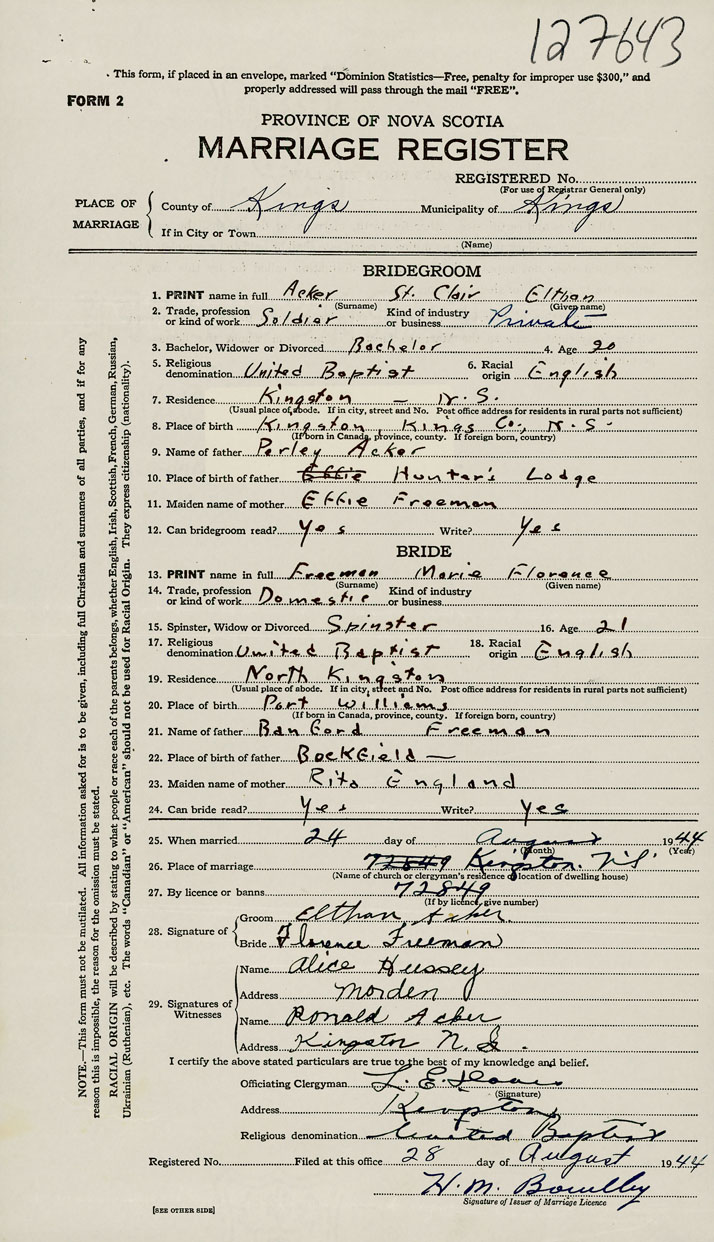 127643
This form, if placed in an envelope, marked "Dominion Statistics—Free, penalty for improper use $300," and
properly addressed will pass through the mail "FREE".
FORM 2
PROVINCE OF NOVA SCOTIA
MARRIAGE REGISTER
REGISTERED No.
(For use of Registrar General only)
PLACE OF MARRIAGE
County of Kings Municipality of Kings
If in City or Town
(Name)
BRIDEGROOM
1. PRINT name in full Acker St. Clair Elthan
(Surname) (Given name)
2. Trade, profession or kind of work Soldier Kind of industry or business Private
3. Bachelor, Widower or Divorced Bachelor 4. Age 20
5. Religious denomination United Baptist 6. Racial origin English
7. Residence Kingston — N.S.
(Usual place of abode. If in city, street and No. Post office address for residents in rural parts not sufficient)
8. Place of birth Kingston, Kings Co., N.S.
(If born in Canada, province, county. If foreign born, country)
9. Name of father Perley Acker
10. Place of birth of father Effie Hunter's Lodge
11. Maiden name of mother Effie Freeman
12. Can bridegroom read? Yes Write? Yes
BRIDE
13. PRINT name in full Freeman Marie Florence
(Surname) (Given name)
14. Trade, profession or kind of work Domestic Kind of industry or business
15. Spinster, Widow or Divorced Spinster 16. Age 21
17. Religious denomination United Baptist 18. Racial origin English
19. Residence North Kingston
(Usual place of abode. If in city, street and No. Post office address for residents in rural parts not sufficient)
20. Place of birth Port Williams
(If born in Canada, province, county. If foreign born, country)
21. Name of father Banford Freeman
22. Place of birth of father Bockfield —
23. Maiden name of mother Rita England
24. Can bride read? Yes Write? Yes
25. When married 24 day of August 1944
(Month) (Year)
26. Place of marriage 72849 Kingston. N.S.
(Name of church or clergyman's residence or location of dwelling house)
27. By licence or banns 72849
(If by licence, give number)
28. Signature of
Groom Elthan Acker.
Bride Florence Freeman
29. Signatures of Witnesses
Name Alice Hussey
Address Morden
Name Ronald Acker
Address Kingston N.S.
I certify the above stated particulars are true to the best of my knowledge and belief.
Officiating Clergyman L. E.
(Signature)
Address Kingston
Religious denomination United Baptist
Registered No. Filed at this office 28 day of August 1944
H. M.
Signature of Issuer of Marriage Licence
[SEE OTHER SIDE]
NOTE.—This form must not be mutilated. All information asked for is to be given, including full Christian and surnames of all parties, and if for any
reason this is impossible, the reason for the omission must be stated.
RACIAL ORIGIN will be described by stating to what people or race each of the parents belongs, whether English, Irish, Scottish, French, German, Russian,
Ukrainian (Ruthenian), etc. The words "Canadian" or "American" should not be used for Racial Origin. They express citizenship (nationality).